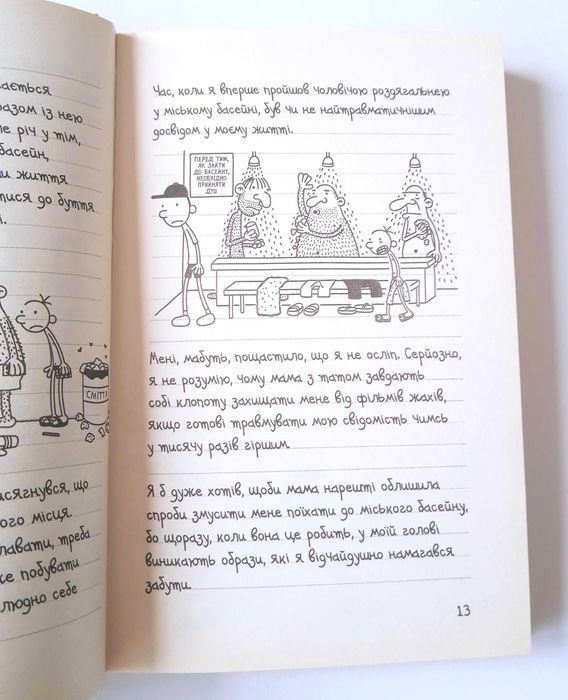 вається
разом із нею
ле річ у тім,
басейн,
ми життя
тися до буття
і.
СМІТТЯ
исягнувся, що
ного місця
лавати, треба
се побувати
людно себе
Час, коли я вперше пройшов чоловічою роздягальнею
у міському басейні, був чи не найтравматичнішим
досвідом у моєму житті.
ПЕРЕД ТИМ,
ЯК ЗАЙТИ
ДО БАСЕЙНУ,
НЕОБХІДНО
ПРИЙНЯТИ
ДУШ
Мені, мабуть, пощастило, що я не осліп. Серйозно,
я не розумію, чому мама з татом завдають
собі клопоту захищати мене від фільмів жахів,
якщо готові травмувати мою свідомість чимсь
у тисячу разів гіршим.
Я б дуже хотів, щоби мама нарешті облишила
спроби змусити мене поїхати до міського басейну,
бо щоразу, коли вона це робить, у моїй голові
виникають образи, які я відчайдушно намагався
забути.
13